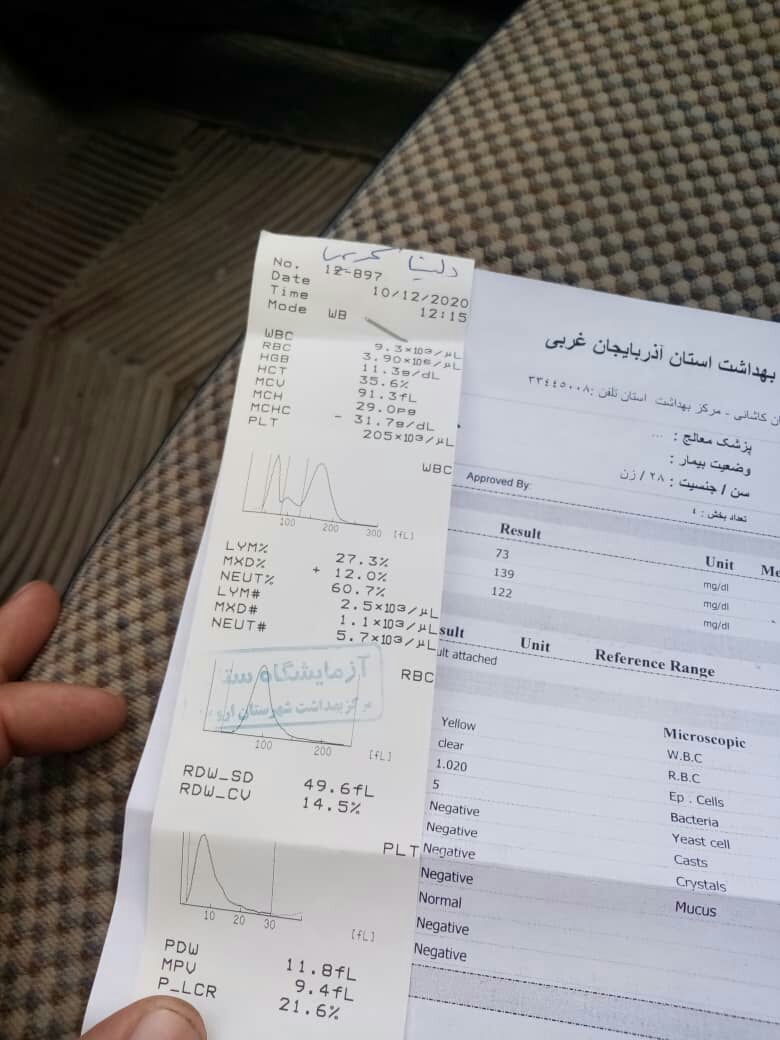 دلینا
No. 12-897
Date 10/12/2020
Time 12:15
Mode WB
WBC 9.3×10³/µL
RBC 3.90×10⁶/µL
HGB 11.3g/dL
HCT 35.6%
MCV 91.3fL
MCH 29.0pg
MCHC - 31.7g/dL
PLT 205×10³/µL
WBC
100 200 300 [fL]
LYM% 27.3%
MXD% + 12.0%
NEUT% 60.7%
LYM# 2.5×10³/µL
MXD# 1.1×10³/µL
NEUT# 5.7×10³/µL
آزمایشگاه ستا
مرکز بهداشت شهرستان ارو
RBC
100 200 [fL]
RDW_SD 49.6fL
RDW_CV 14.5%
PLT
10 20 30 [fL]
PDW 11.8fL
MPV 9.4fL
P_LCR 21.6%
بهداشت استان آذربایجان غربی
کاشانی - مرکز بهداشت استان تلفن :٣٣٤٤٥٠٠٨
پزشک معالج : ...
وضعیت بیمار :
سن / جنسیت : ٢٨ / زن
تعداد بخش : ٤
Approved By:
Result Unit Me
73 mg/dl
139 mg/dl
122 mg/dl
sult Unit Reference Range
ult attached
Yellow Microscopic
clear W.B.C
1.020 R.B.C
5 Ep . Cells
Negative Bacteria
Negative Yeast cell
Negative Casts
Negative Crystals
Normal Mucus
Negative
Negative